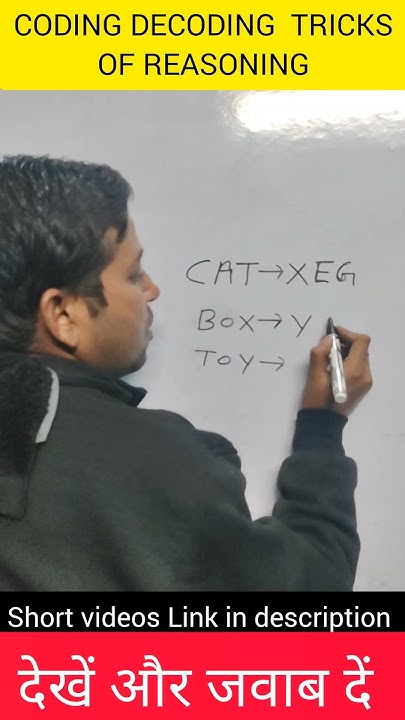 CODING DECODING TRICKS
OF REASONING
CAT→XEG
BOX→Y
TOY→
Short videos Link in description
देखें और जवाब दें